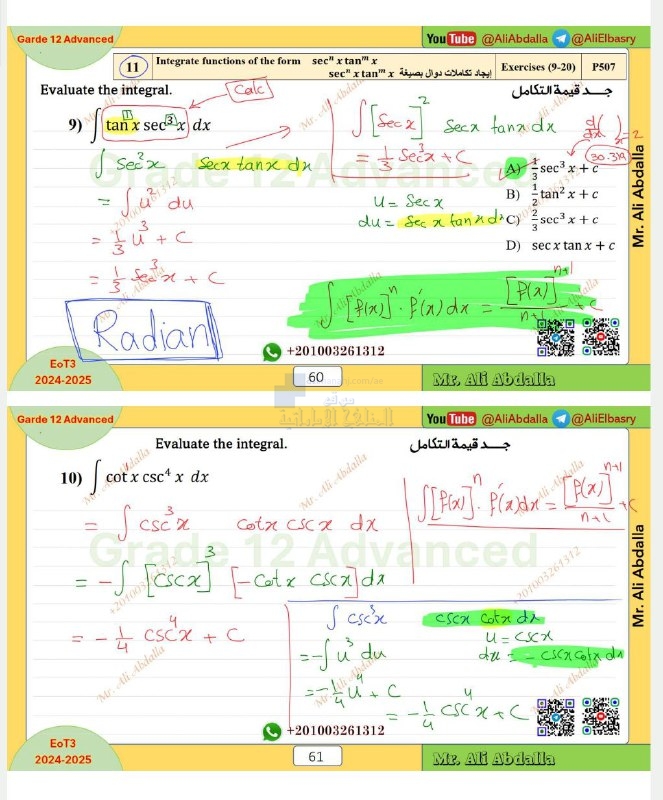 Garde 12 Advanced
You Tube @AliAbdalla @AliElbasry
11
Integrate functions of the form secⁿ x tanᵐ x
إيجاد تكاملات دوال بصيغة secⁿ x tanᵐ x
Exercises (9-20)
P507
Evaluate the integral.
جــد قيمة التكامل
Calc
9) ∫ tan x sec³ x dx
1
∫ sec²x secx tanx dx
= ∫ u² du
= 1/3 u³ + C
= 1/3 sec³x + C
Radian
∫ [secx]² secx tanx dx
= 1/3 sec³x + C
u = secx
du = secx tanx dx
d/dx ( )x=2
30.319
A) 1/3 sec³ x + c
B) 1/2 tan² x + c
C) 2/3 sec³ x + c
D) sec x tan x + c
∫ [f(x)]ⁿ · f'(x) dx = [f(x)]ⁿ⁺¹/n+1 + C
Grade 12 Advanced
Mr. Ali Abdalla
+201003261312
EoT3
2024-2025
60
Mr. Ali Abdalla
موقع
المناهج الإماراتية
Garde 12 Advanced
You Tube @AliAbdalla @AliElbasry
Evaluate the integral.
جــد قيمة التكامل
10) ∫ cot x csc⁴ x dx
= ∫ csc³x cotx cscx dx
= -∫ [cscx]³ [-cotx cscx] dx
= -1/4 csc⁴x + C
∫ [f(x)]ⁿ · f'(x) dx = [f(x)]ⁿ⁺¹/n+1 + C
∫ csc³x cscx cotx dx
u = cscx
du = -cscx cotx dx
= -∫ u³ du
= -1/4 u⁴ + C
= -1/4 csc⁴x + C
Grade 12 Advanced
Mr. Ali Abdalla
+201003261312
EoT3
2024-2025
61
Mr. Ali Abdalla